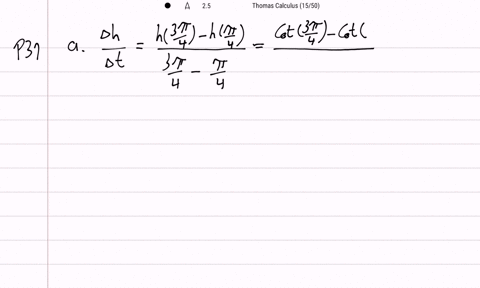 2.5 Thomas Calculus (15/50)
P31 a. Δh/Δt = (h(3π/4) - h(π/4))/(3π/4 - π/4) = (Cot(3π/4) - Cot(